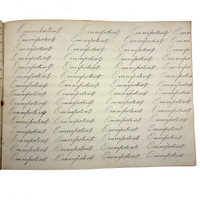 Omnipotent Omnipotent Omnipotent Omnipotent
Omnipotent Omnipotent Omnipotent Omnipotent
Omnipotent Omnipotent Omnipotent Omnipotent
Omnipotent Omnipotent Omnipotent Omnipotent
Omnipotent Omnipotent Omnipotent Omnipotent
Omnipotent Omnipotent Omnipotent Omnipotent
Omnipotent Omnipotent Omnipotent Omnipotent
Omnipotent Omnipotent Omnipotent Omnipotent
Omnipotent Omnipotent Omnipotent Omnipotent
Omnipotent Omnipotent Omnipotent Omnipotent
Omnipotent Omnipotent Omnipotent Omnipotent
Omnipotent Omnipotent Omnipotent Omnipotent